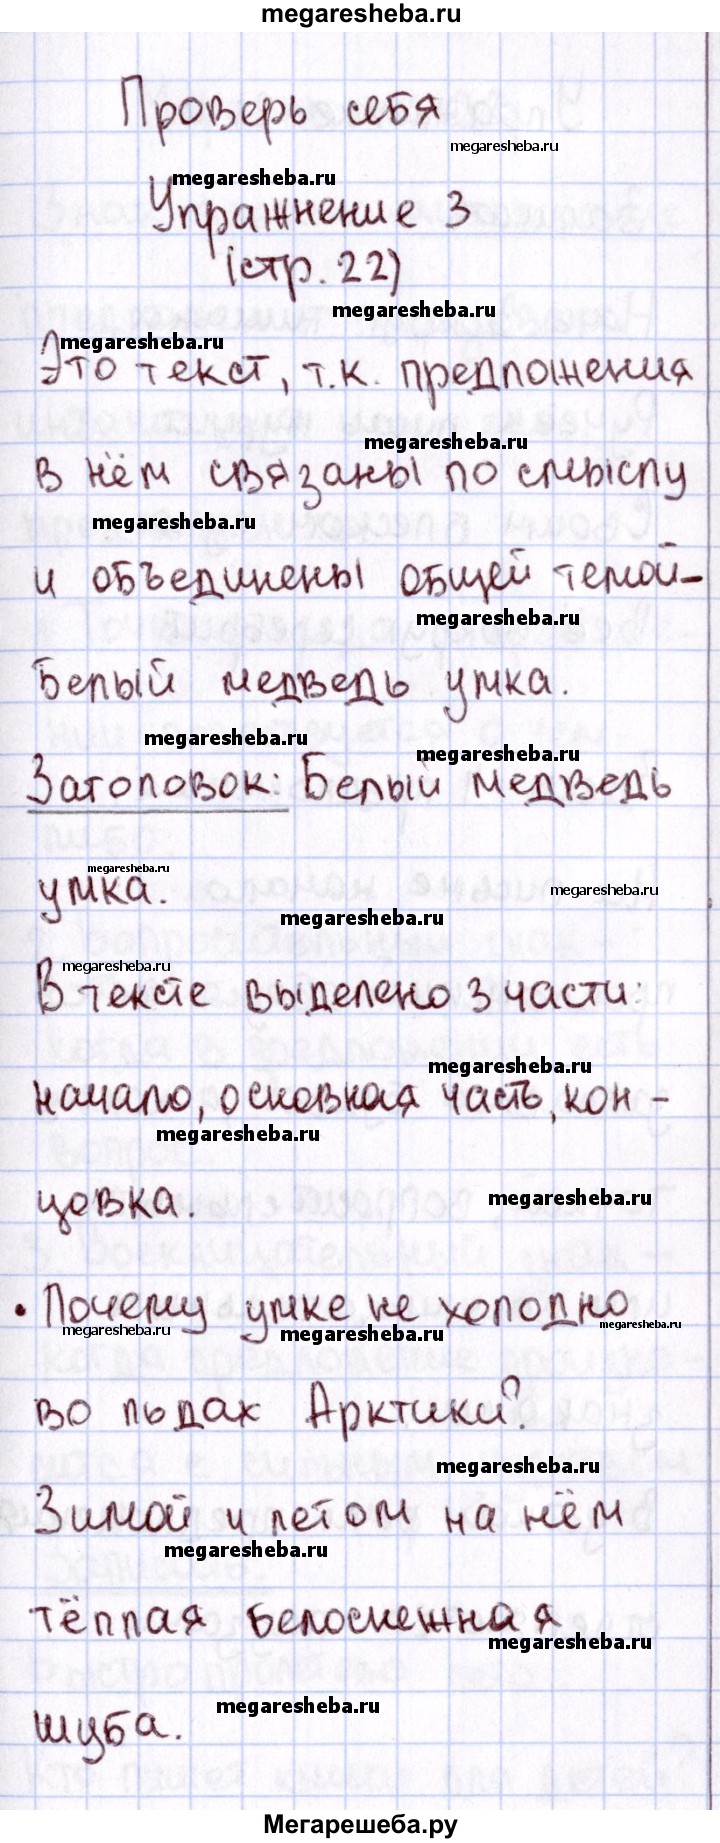 megaresheba.ru
Проверь себя
megaresheba.ru
megaresheba.ru
Упражнение 3
(стр. 22)
megaresheba.ru
megaresheba.ru
Это текст, т.к. предложения
megaresheba.ru
в нём связаны по смыслу
megaresheba.ru
и объединены общей темой-
megaresheba.ru
Белый медведь умка.
megaresheba.ru
megaresheba.ru
Заголовок: Белый медведь
megaresheba.ru
умка.
megaresheba.ru
megaresheba.ru
megaresheba.ru
В тексте выделено 3 части:
megaresheba.ru
начало, основная часть, кон-
megaresheba.ru
цовка.
megaresheba.ru
• Почему умке не холодно
megaresheba.ru
megaresheba.ru
megaresheba.ru
во льдах Арктики?
megaresheba.ru
Зимой и летом на нём
megaresheba.ru
тёплая белоснежная
megaresheba.ru
шуба.
megaresheba.ru
Мегарешеба.ру